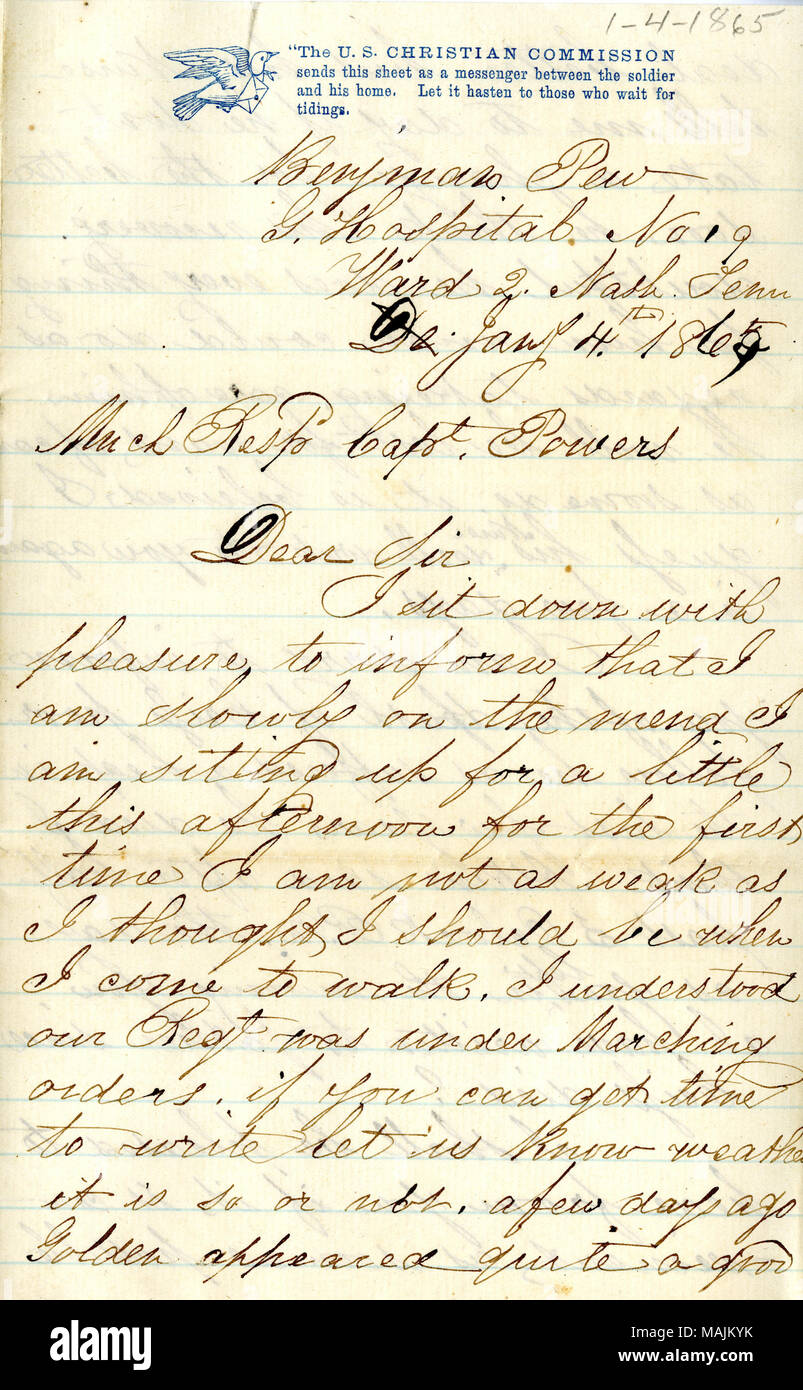 1-4-1865
"The U. S. CHRISTIAN COMMISSION
sends this sheet as a messenger between the soldier
and his home. Let it hasten to those who wait for
tidings.
Benjman Pew
G. Hospital No 19
Ward 2. Nash. Tenn
De. Jany 4.th 1865
Much Resp Capt. Powers
Dear Sir
I sit down with
pleasure to inform that I
am slowly on the mend I
am sitting up for a little
this afternoon for the first
time I am not as weak as
I thought I should be when
I come to walk. I understood
our Regt was under Marching
orders. if you can get time
to write let us know weathe
it is so or not. a few days ago
Golden appeared quite a good
alamy
Image ID: MAJKYK
www.alamy.com